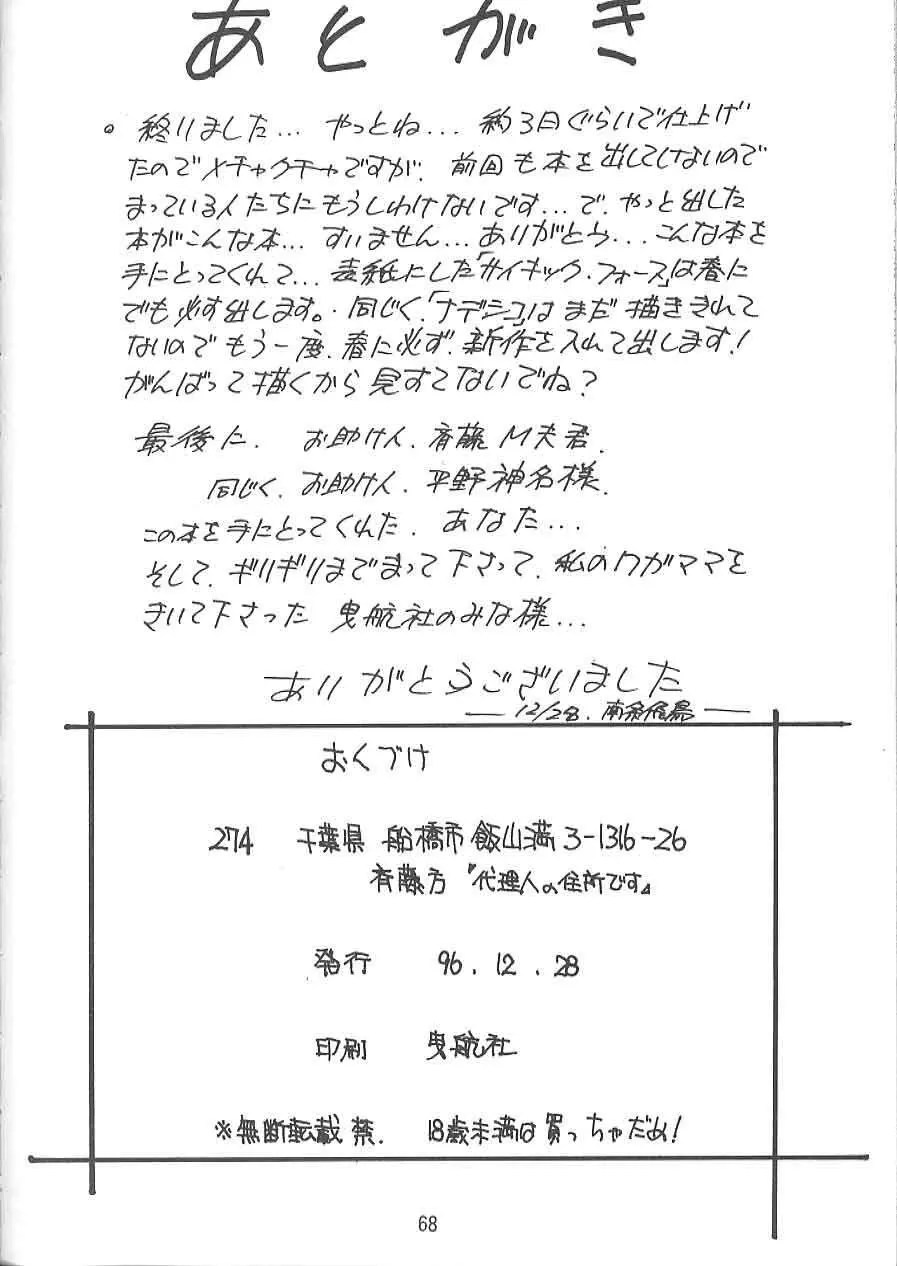 あとがき
。終りました… やっとね… 約3日ぐらいで仕上げ
たのでメチャクチャですが、前回も本を出してしないので
まっている人たちにもうしわけないです…で、やっと出した
本がこんな本… すいません…ありがとう…こんな本を
手にとってくれて… 表紙にした「サイキック・フォース」は春に
でも必ず出します。同じく、「ナデシコ」はまだ描ききれて
ないのでもう一度、春に必ず、新作を入れて出します！
がんばって描くから見すてないでね？
最後に、お助け人、斉藤M夫君、
同じく、お助け人、平野神名様、
この本を手にとってくれた、あなた…
そして、ギリギリまでまって下さって、私のワガママを
きいて下さった 曳航社のみな様…
ありがとうございました
― 12/28. 南条飛鳥 ―
おくづけ
274 千葉県 船橋市 飯山満 3-1316-26
斉藤方『代理人の住所です』
発行 96.12.28
印刷 曳航社
※無断転載禁. 18歳未満は買っちゃだめ！
68